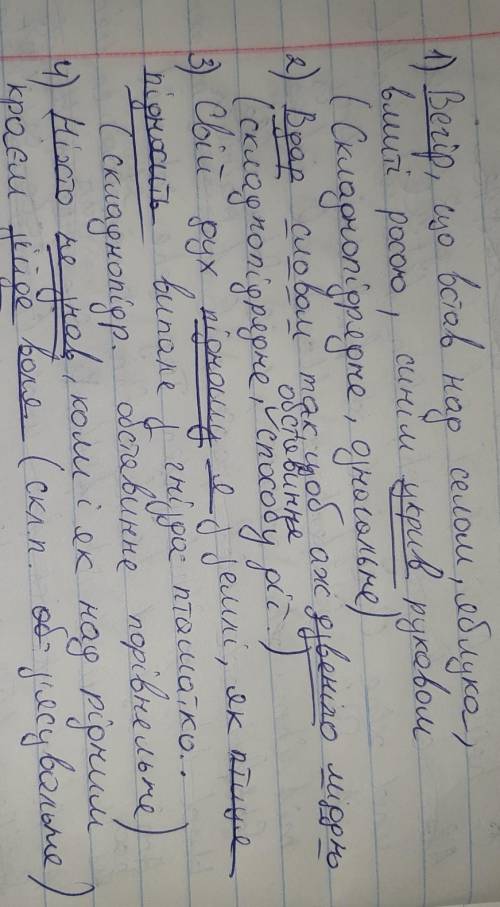 1) Вечір, що встав над селом, яблука,
вмиті росою, синім укрив рукавом
(Складнопідрядне, означальне)
2) Вдар словом так щоб аж дзвеніло міддю
(складнопідрядне, обставинне способу дії)
3) Свій рух підношу я у землі, як птиця
підносить випале у гнізда пташатко..
(складнопідр. обставинне порівнельне)
4) Ніхто не знав, коли і як над рідним
краєм зійде воля (скл.п. з'ясувальне)